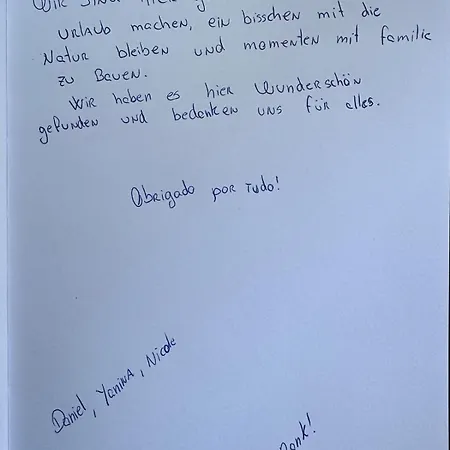 Wir sind
urlaub machen, ein bisschen mit die
Natur bleiben und momenten mit familie
zu Bauen.
Wir haben es hier Wunderschön
gefunden und bedanken uns für alles.
Obrigado por tudo!
Daniel, Yanina, Nicole
Dank!